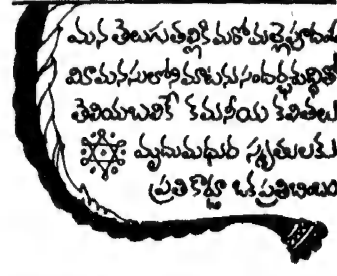 మన తెలుగుతల్లికి మరో మల్లెపూదండ
మీ మనసులోని మాటను సందర్భశుద్ధితో
తెలియబలికే కమనీయ కవితలు
మృదుమధుర స్మృతులకు
ప్రతికార్డూ ఒక ప్రతిబింబం